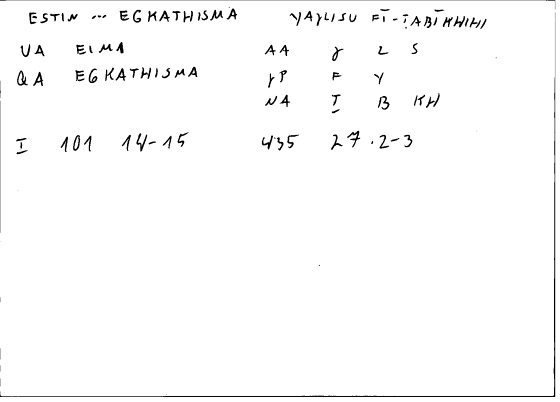 ESTIN ... EGKATHISMA YAJLISU FĪ-ṬABĪKHIHI
VA EIMA AA J L S
QA EGKATHISMA JP F Y
NA Ṭ B KH
I 101 14-15 435 27.2-3